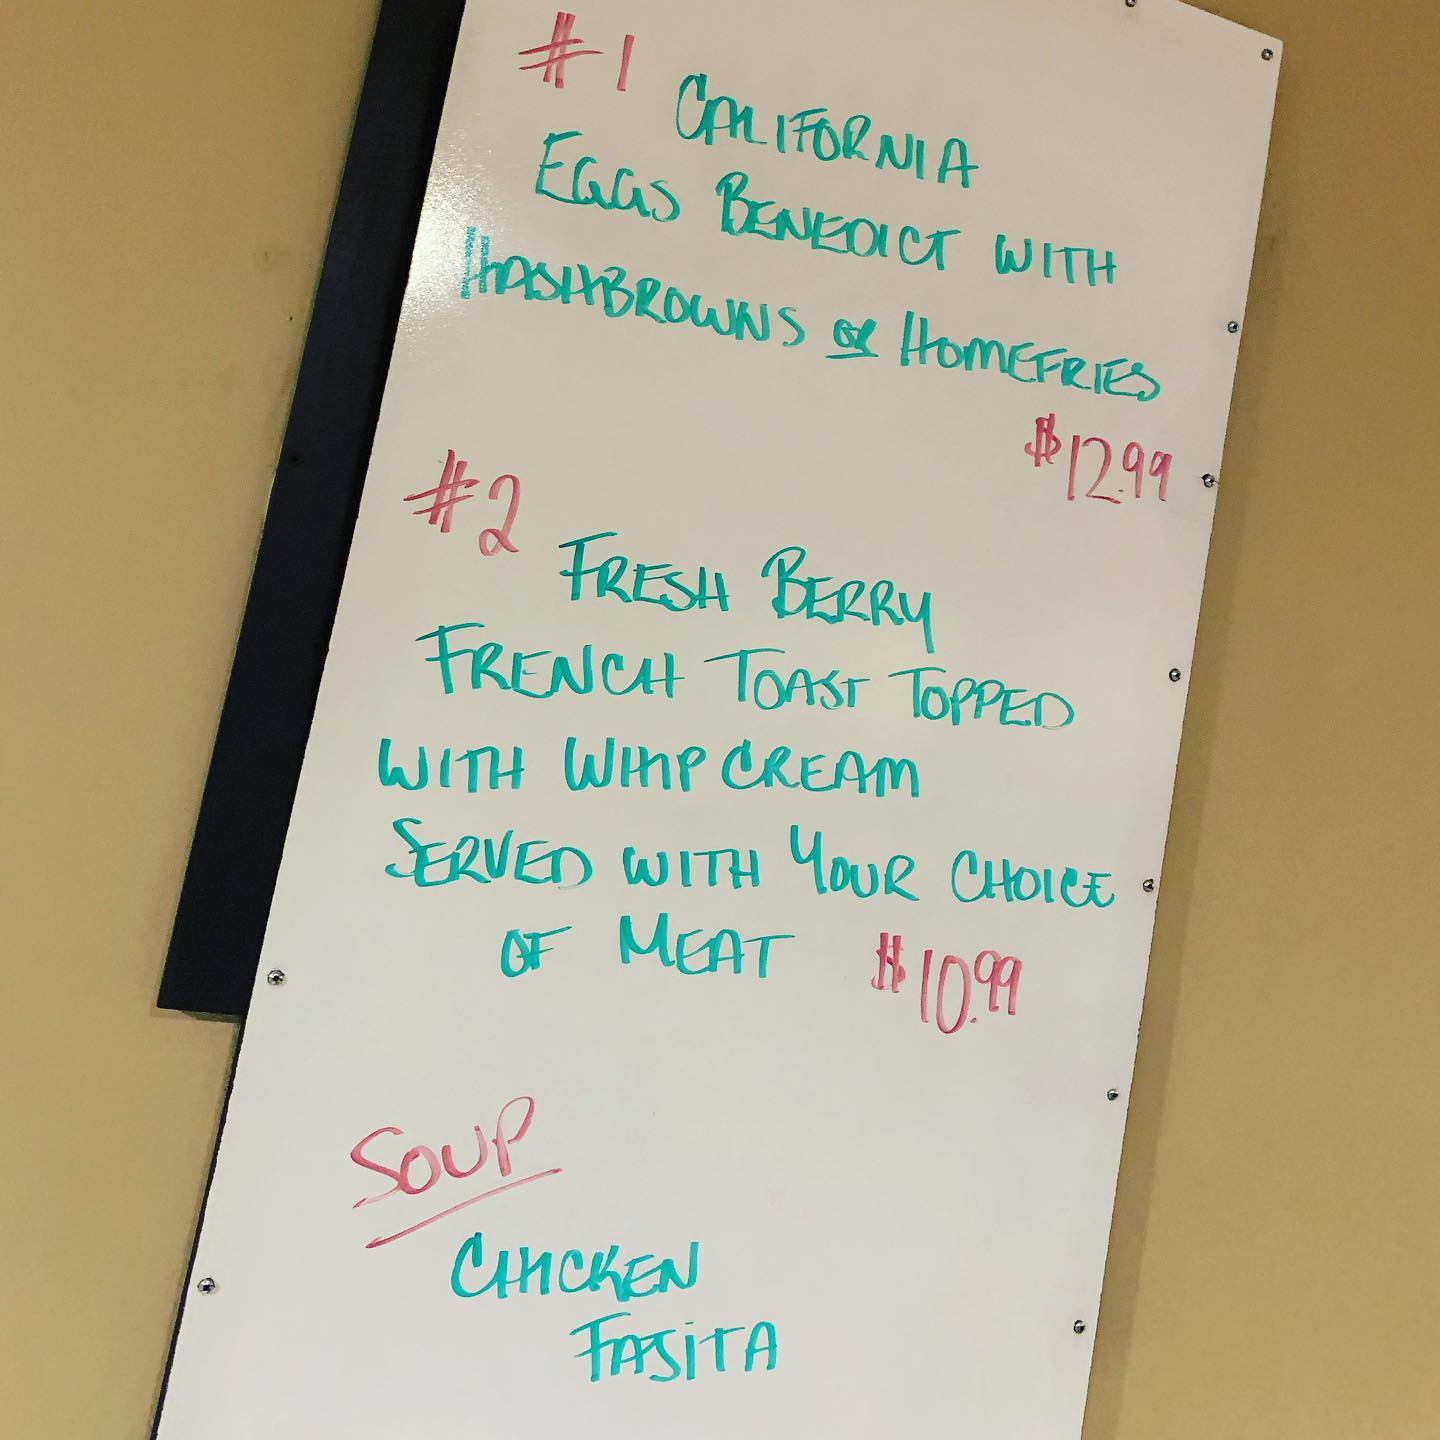 #1 CALIFORNIA
EGGS BENEDICT WITH
HASHBROWNS OR HOMEFRIES
$12.99
#2 FRESH BERRY
FRENCH TOAST TOPPED
WITH WHIP CREAM
SERVED WITH YOUR CHOICE
OF MEAT $10.99
SOUP
CHICKEN
FAJITA